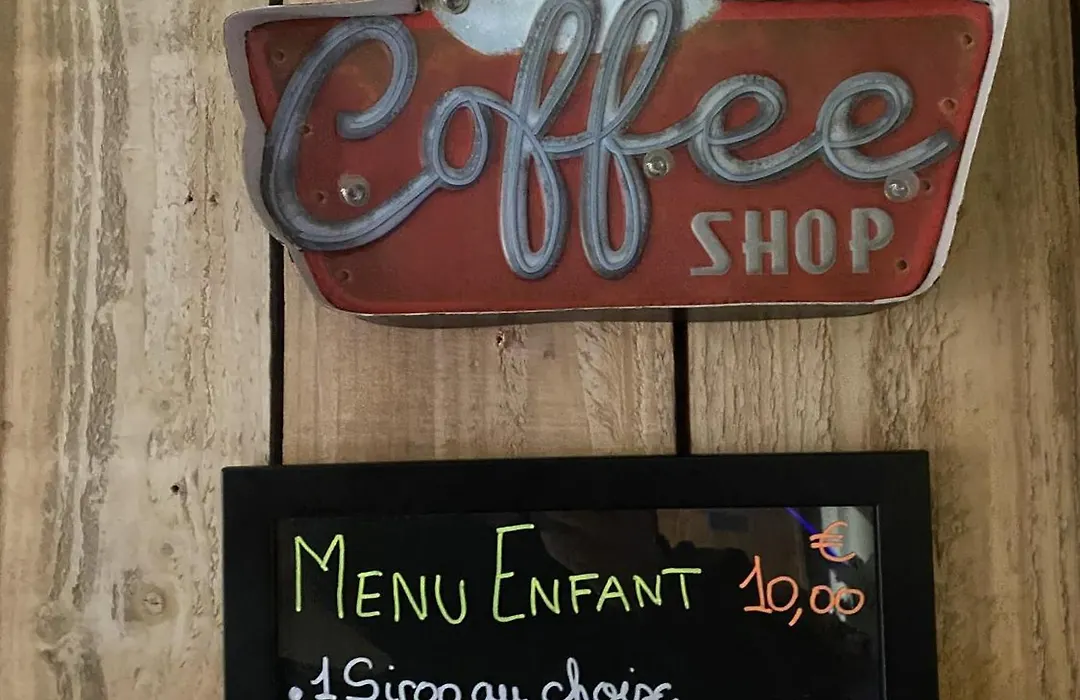 Coffee
SHOP
MENU ENFANT 10,00 €
• 1 Sirop au choix